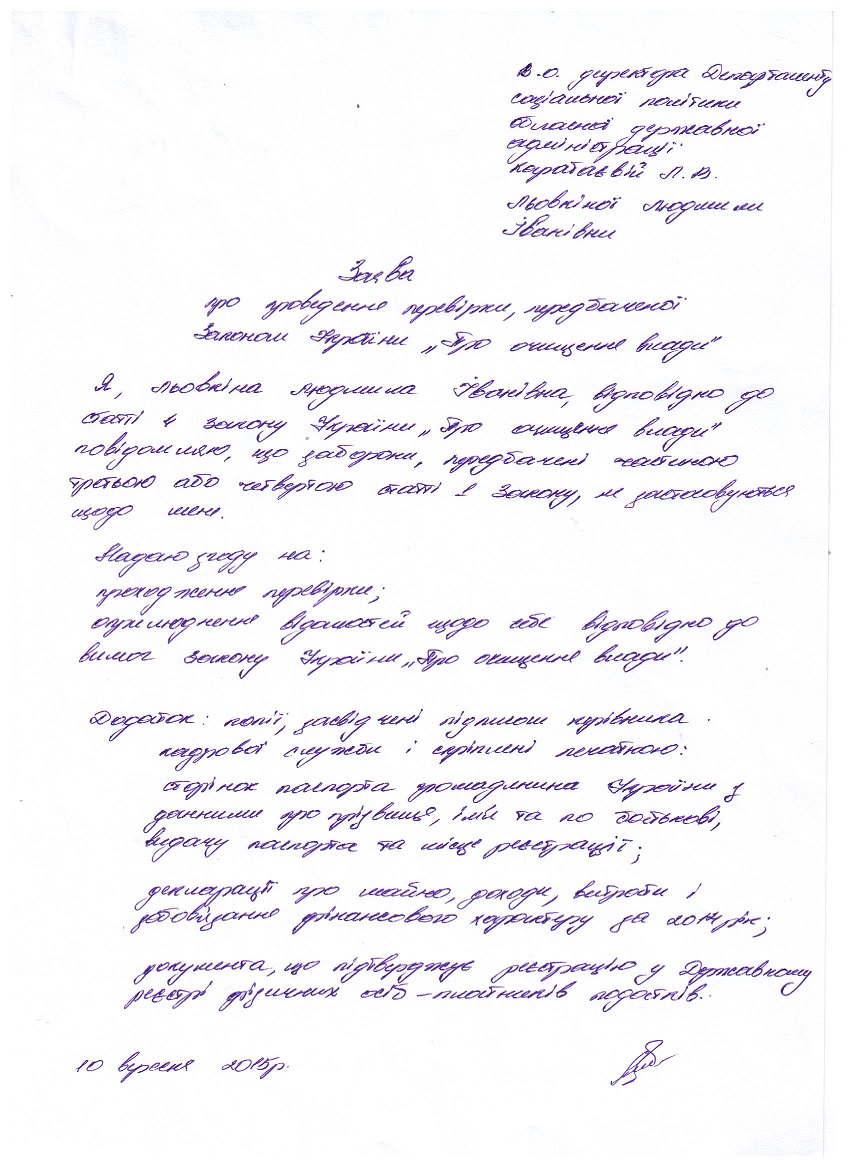 В.о. директора Департаменту
соціальної політики
обласної державної
адміністрації
Каратаєвій Л.В.
Льовкіної Людмили
Іванівни
Заява
про проведення перевірки, передбаченої
Законом України „Про очищення влади"
Я, Льовкіна Людмила Іванівна, відповідно до
статті 4 Закону України „Про очищення влади"
повідомляю, що заборони, передбачені частиною
третьою або четвертою статті 1 Закону, не застосовуються
щодо мене.
Надаю згоду на:
проходження перевірки;
оприлюднення відомостей щодо себе відповідно до
вимог Закону України „Про очищення влади".
Додаток: копії, засвідчені підписом керівника
кадрової служби і скріплені печаткою:
сторінок паспорта громадянина України з
данними про прізвище, ім'я та по батькові,
видачу паспорта та місце реєстрації;
декларації про майно, доходи, витрати і
зобов'язання фінансового характеру за 2014 рік;
документа, що підтверджує реєстрацію у Державному
реєстрі фізичних осіб – платників податків.
10 вересня 2015р.